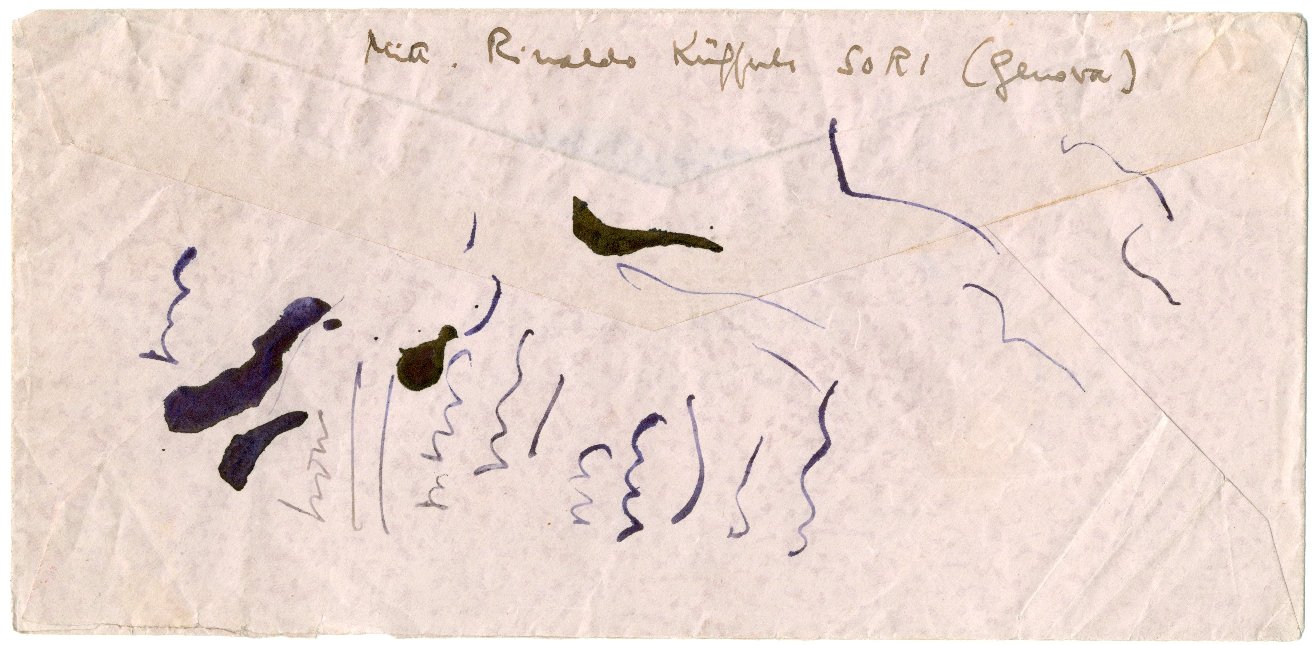 Mitt. Rinaldo Küfferle SORI (Genova)